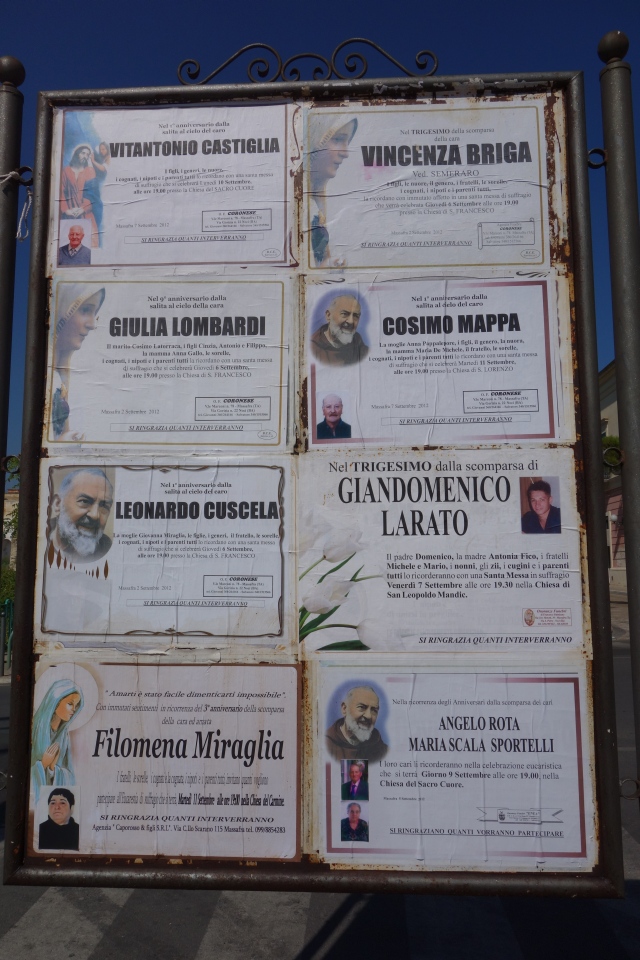 Nel 1° anniversario dalla
salita al cielo del caro
VITANTONIO CASTIGLIA
I figli, i generi, le nuore,
i cognati, i nipoti e i parenti tutti lo ricordano con una santa messa
di suffragio che si celebrerà Lunedì 10 Settembre,
alle ore 19.00 presso la Chiesa del SACRO CUORE
O. F. CORONESE
Massafra 7 Settembre 2012
SI RINGRAZIA QUANTI INTERVERRANNO
Nel TRIGESIMO della scomparsa
della cara
VINCENZA BRIGA
Ved. SEMERARO
I figli, le nuore, il genero, i fratelli, le sorelle,
i cognati, i nipoti e i parenti tutti,
la ricordano con immutato affetto in una santa messa di suffragio
che verrà celebrata Giovedì 6 Settembre alle ore 19.00
presso la Chiesa di S. FRANCESCO
SI RINGRAZIA QUANTI INTERVERRANNO
Nel 9° anniversario dalla
salita al cielo della cara
GIULIA LOMBARDI
Il marito Cosimo Latorraca, i figli Cinzia, Antonio e Filippo,
la mamma Anna Gallo, le sorelle,
i cognati, i nipoti e i parenti tutti la ricordano con una santa messa
di suffragio che si celebrerà Giovedì 6 Settembre,
alle ore 19.00 presso la Chiesa di S. FRANCESCO
O. F. CORONESE
Massafra 2 Settembre 2012
SI RINGRAZIA QUANTI INTERVERRANNO
Nel 1° anniversario dalla
salita al cielo del caro
COSIMO MAPPA
La moglie Anna Pappalepore, i figli, il genero, la nuora,
la mamma Maria De Michele, il fratello, le sorelle,
i cognati, i nipoti e i parenti tutti lo ricordano con una santa messa
di suffragio che si celebrerà Martedì 11 Settembre,
alle ore 19.00 presso la Chiesa di S. LORENZO
O. F. CORONESE
Massafra 7 Settembre 2012
SI RINGRAZIA QUANTI INTERVERRANNO
Nel 1° anniversario dalla
salita al cielo del caro
LEONARDO CUSCELA
La moglie Giovanna Miraglia, le figlie, i generi, il fratello, le sorelle,
i cognati, i nipoti e i parenti tutti lo ricordano con una santa messa
di suffragio che si celebrerà Giovedì 6 Settembre,
alle ore 19.00 presso la Chiesa di S. FRANCESCO
O. F. CORONESE
Massafra 2 Settembre 2012
SI RINGRAZIA QUANTI INTERVERRANNO
Nel TRIGESIMO dalla scomparsa di
GIANDOMENICO
LARATO
Il padre Domenico, la madre Antonia Fico, i fratelli
Michele e Mario, i nonni, gli zii, i cugini e i parenti
tutti lo ricorderanno con una Santa Messa in suffragio
Venerdì 7 Settembre alle ore 19.30 nella Chiesa di
San Leopoldo Mandic.
SI RINGRAZIA QUANTI INTERVERRANNO
"Amarti è stato facile dimenticarti impossibile".
Con immutati sentimenti in ricorrenza del 3° anniversario della scomparsa
della cara ed amata
Filomena Miraglia
I fratelli, le sorelle, i cognati e le cognate, i nipoti e i parenti tutti, invitano quanti vogliono
partecipare all'Eucarestia di suffragio che si terrà Martedì 11 Settembre alle ore 19.00 nella Chiesa del Carmine.
SI RINGRAZIA QUANTI INTERVERRANNO
Agenzia "Caporosso & figli S.R.L". Via C.llo Scarano 115 Massafra tel. 099/8854283
Nella ricorrenza degli Anniversari dalla scomparsa dei cari
ANGELO ROTA
MARIA SCALA SPORTELLI
I loro cari li ricorderanno nella celebrazione eucaristica
che si terrà Giorno 9 Settembre alle ore 19.00 nella
Chiesa del Sacro Cuore.
SI RINGRAZIANO QUANTI VORRANNO PARTECIPARE